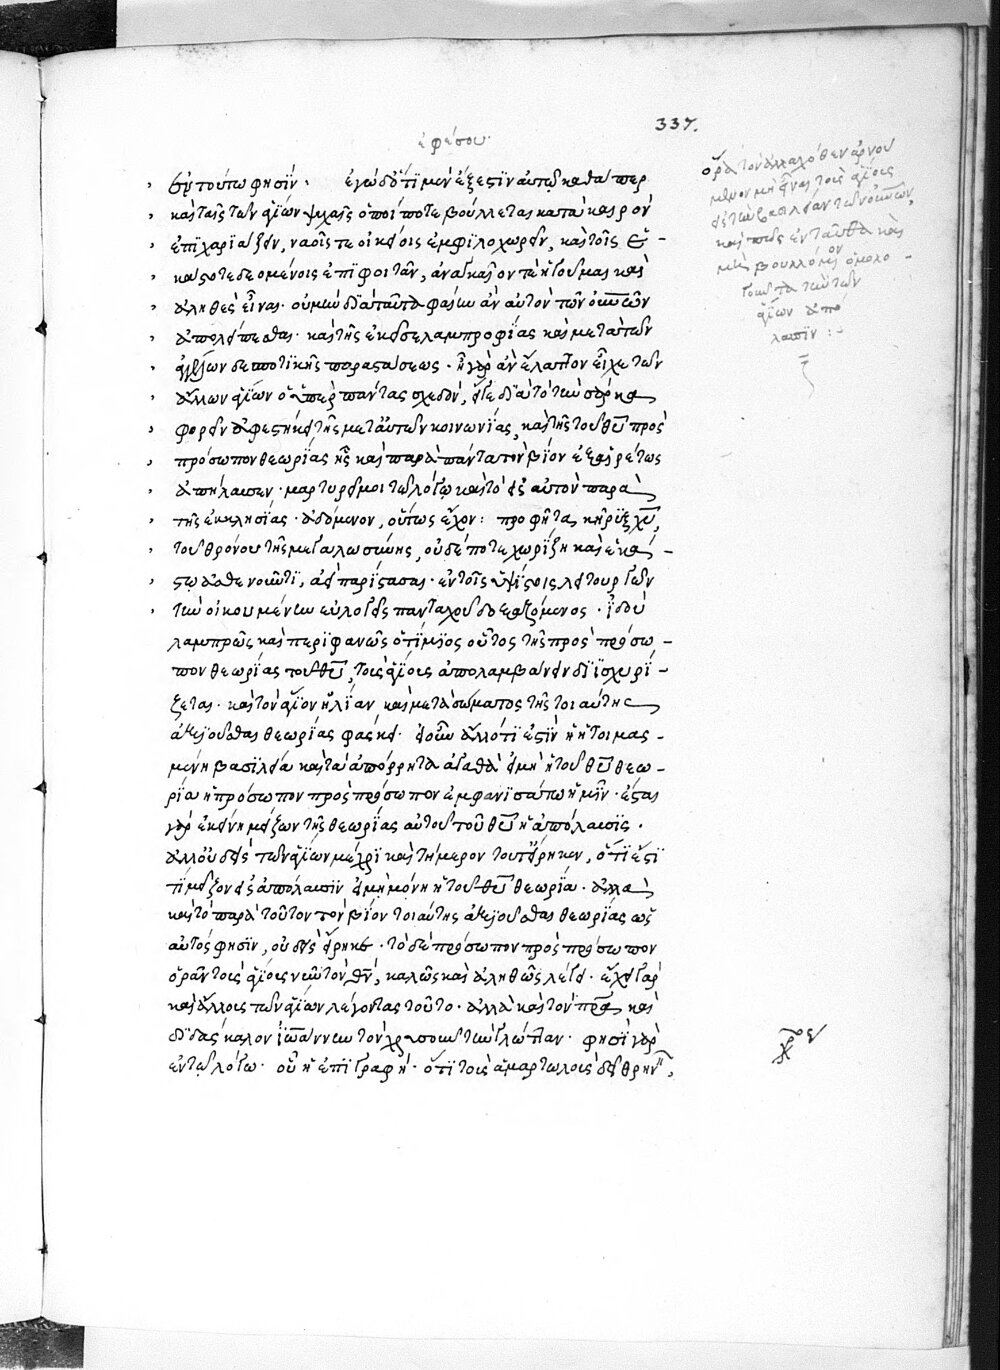 337.
ἐφέσου
ἐν τούτω φησΐν· ἐγὼ δ' ὅτι μὲν ἔξεστιν αὐτῶ καθάπερ
καὶ ταῖς τῶν ἁγίων ψυχαῖς ὁποί ποτε βούλεται κατὰ καιρὸν
ἐπιχωριάζειν, ναοῖς τε οἰκείοις ἐμφιλοχωρεῖν, καὶ τοῖς
καὶ δεομένοις ἐπιφοιτᾶν, ἀναγκαῖον τε ἡγοῦμαι καὶ
ἀληθὲς εἶναι· οὐ μὴν διὰ ταῦτα φαίην ἂν αὐτὸν τῶν οὐνῶν
ἀπολείπεσθαι· καὶ τῆς ἐκεῖσε λαμπροφορίας καὶ μετὰ τῶν
ἀγγέλων δεσποτικῆς παραστάσεως· ἢ γὰρ ἂν ἔλαττον εἶχε τῶν
ἄλλων ἁγίων ὁ ὑπὲρ πάντας σχεδὸν, εἴγε διὰ τὸ τὴν σάρκα
φορεῖν ἀφεστήκει τῆς μετ' αὐτῶν κοινωνίας, καὶ τῆς τοῦ θῦ πρὸς
πρόσωπον θεωρίας ἧς καὶ παρὰ πάντα τὸν βίον ἐξαιρέτως
ἀπήλαυσεν· μαρτυρεῖ μοι τῶ λόγω καὶ τὸ εἰς αὐτὸν παρὰ
τῆς ἐκκλησίας ἀδόμενον, οὕτως ἔχον: προφῆτα κήρυξ χῦ,
τοῦ θρόνου τῆς μεγαλωσύνης, οὐδέποτε χωρίζη καὶ ἑκά-
στω ἀσθενοῦντι, ἀεὶ παρίστασαι· ἐν τοῖς ὑψίστοις λειτουργῶν
τὴν οἰκουμένην εὐλογεῖς πανταχοῦ δοξαζόμενος· ἰδοὺ
λαμπρῶς καὶ περιφανῶς ὁ τίμιος οὗτος τῆς πρὸς πρόσω-
πον θεωρίας τοῦ θῦ, τοὺς ἁγίους ἀπολαμβάνειν διϊσχυρί-
ζεται· καὶ τὸν ἅγιον ἠλίαν καὶ μετὰ σώματος τῆς τοιαύτης
ἀξιοῦσθαι θεωρίας φάσκει· εἰ οὖν ἄλλό τί ἐστιν ἡ ἡτοιμασ-
μένη βασιλεία καὶ τὰ ἀπόρρητα ἀγαθὰ εἰ μὴ ἡ τοῦ θῦ θεω-
ρία ἡ πρόσωπον πρὸς πρόσωπον ἐμφανισάτω ἡμῖν· ἔσται
γὰρ ἐκείνη μείζων τῆς θεωρίας αὐτοῦ τοῦ θῦ ἡ ἀπόλαυσις·
ἀλλ' οὐδεὶς τῶν ἁγίων μέχρι καὶ τήμερον τοῦτ' εἴρηκεν, ὅτι ἔστι
τί μεῖζον εἰς ἀπόλαυσιν εἰ μὴ μόνη ἡ τοῦ θῦ θεωρία· ἀλλὰ
καὶ τὸ παρὰ τοῦτον τὸν βίον τοιαύτης ἀξιοῦσθαι θεωρίας ὡς
αὐτός φησιν, οὐδεὶς εἴρηκε· τὸ δὲ πρόσωπον πρὸς πρόσωπον
ὁρᾶν τοὺς ἁγίους νῦν τὸν θν, καλῶς καὶ ἀληθῶς λέγει· ἔχει γὰρ
καὶ ἄλλους τῶν ἁγίων λέγοντας τοῦτο· ἀλλὰ καὶ τὸν πρα καὶ
διδάσκαλον ἰωάννην τὸν χρυσοῦν τὴν γλῶτταν· φησὶ γὰρ
ἐν τῶ λόγω· οὗ ἡ ἐπιγραφή· ὅτι τοὺς ἁμαρτωλοὺς δεῖ θρην
ὅρα τὸν ἀλλαχόθεν ἀρνού
μενον μὴ εἶναι τοὺς ἁγίους
εἰς τὴν βασιλείαν τῶν οὐνῶν,
καὶ πῶς ἐνταῦθα καὶ
μὴ βουλόμενον ὁμολο-
γοῦντα τὴν τῶν
ἁγίων ἀπό
λαυσϊν:-